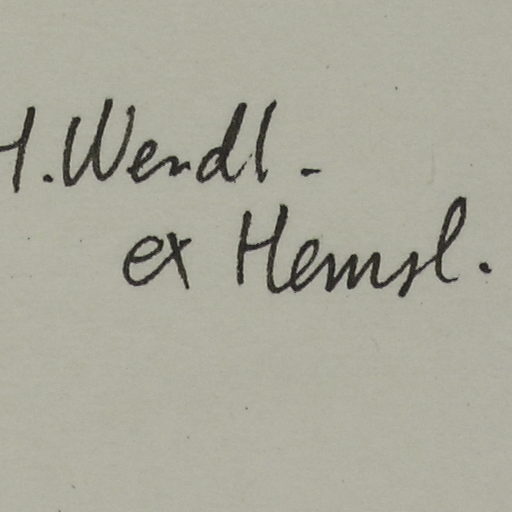 H.Wendl.
ex Hemsl.